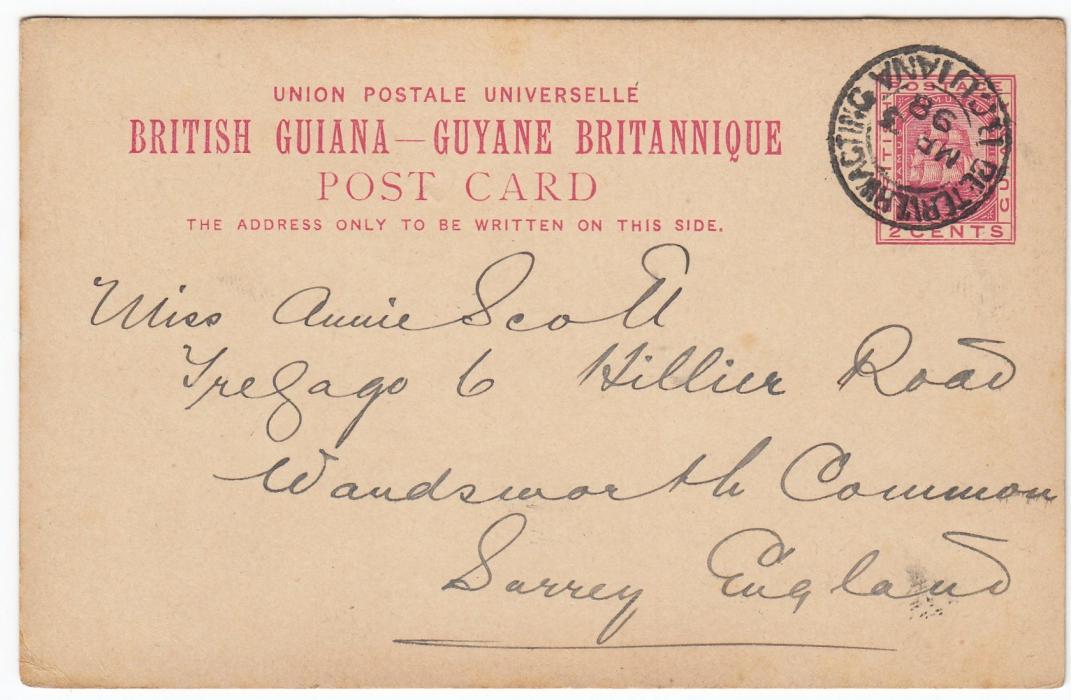 UNION POSTALE UNIVERSELLE
BRITISH GUIANA — GUYANE BRITANNIQUE
POST CARD
THE ADDRESS ONLY TO BE WRITTEN ON THIS SIDE.
POSTAGE
2 CENTS
98
Miss Annie Scott
6 Hillier Road
Wandsworth Common
Surrey England